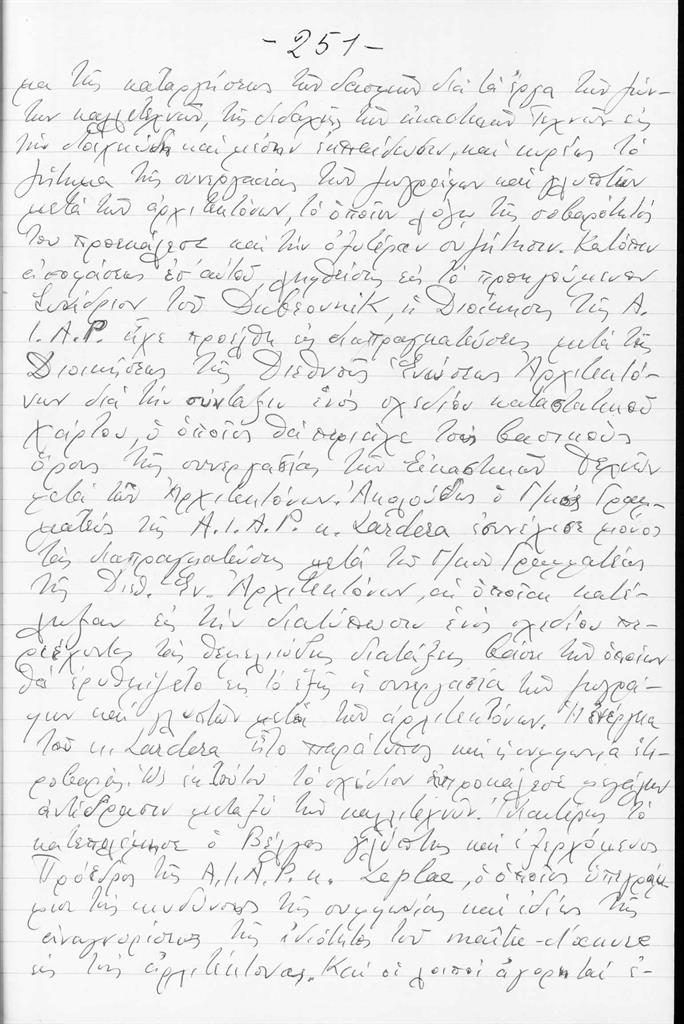 - 251 -
μα τῆς καταργήσεως τῶν δασμῶν διὰ τὰ ἔργα τῶν ζών-
των καλλιτεχνῶν, τῆς διδαχῆς τῶν εἰκαστικῶν Τεχνῶν εἰς
τὴν στοιχειώδη καὶ μέσην ἐκπαίδευσιν, καὶ κυρίως τὸ
ζήτημα τῆς συνεργασίας τῶν ζωγράφων καὶ γλυπτῶν
μετὰ τῶν ἀρχιτεκτόνων, τὸ ὁποῖον λόγῳ τῆς σοβαρότητός
του προεκάλεσε καὶ τὴν ὀξυτέραν συζήτησιν. Κατόπιν
ἀποφάσεως ἐπ' αὐτοῦ, ληφθείσης εἰς τὸ προηγούμενον
Συνέδριον τοῦ Ντυβρουνικ, ἡ Διοίκησις τῆς Α.
I.A.P. εἶχε προέλθη εἰς διαπραγματεύσεις μετὰ τῆς
Διοικήσεως τῆς Διεθνοῦς Ἑνώσεως Ἀρχιτεκτό-
νων διὰ τὴν σύνταξιν ἑνὸς σχεδίου καταστατικοῦ
χάρτου, ὁ ὁποῖος θὰ περιεῖχε τοὺς βασικοὺς
ὅρους τῆς συνεργασίας τῶν Εἰκαστικῶν Τεχνῶν
μετὰ τῶν Ἀρχιτεκτόνων. Ἀκολούθως ὁ Γ/κὸς Γραμ-
ματεὺς τῆς A.I.A.P. κ. Lardera ἐσυνέχισε μόνος
τὰς διαπραγματεύσεις μετὰ τοῦ Γ/κοῦ Γραμματέως
τῆς Διεθ. Ἑν. Ἀρχιτεκτόνων, αἱ ὁποῖαι κατέ-
ληξαν εἰς τὴν διατύπωσιν ἑνὸς σχεδίου πε-
ριέχοντος τὰς θεμελιώδεις διατάξεις βάσει τῶν ὁποίων
θὰ ἐρυθμίζετο εἰς τὸ ἑξῆς ἡ συνεργασία τῶν ζωγρά-
φων καὶ γλυπτῶν μετὰ τῶν ἀρχιτεκτόνων. Ἡ ἐνέργεια
τοῦ κ. Lardera ἦτο παράτυπος καὶ ἡ συμφωνία ἑτε-
ροβαρής. Ὡς ἐκ τούτου τὸ σχέδιον προεκάλεσε μεγάλην
ἀντίδρασιν μεταξὺ τῶν καλλιτεχνῶν. Ἰδιαιτέρως τὸ
κατεπολέμησε ὁ Βέλγος γλύπτης καὶ ἐξερχόμενος
Πρόεδρος τῆς A.I.A.P. κ. Leplae, ὁ ὁποῖος ὑπεγράμ-
μισε τοὺς κινδύνους τῆς συμφωνίας καὶ ἰδίως τῆς
ἀναγνωρίσεως τῆς ἰδιότητος τοῦ maître-d'œuvre
εἰς τοὺς ἀρχιτέκτονας. Καὶ οἱ λοιποὶ ἀγορηταὶ ἐ-